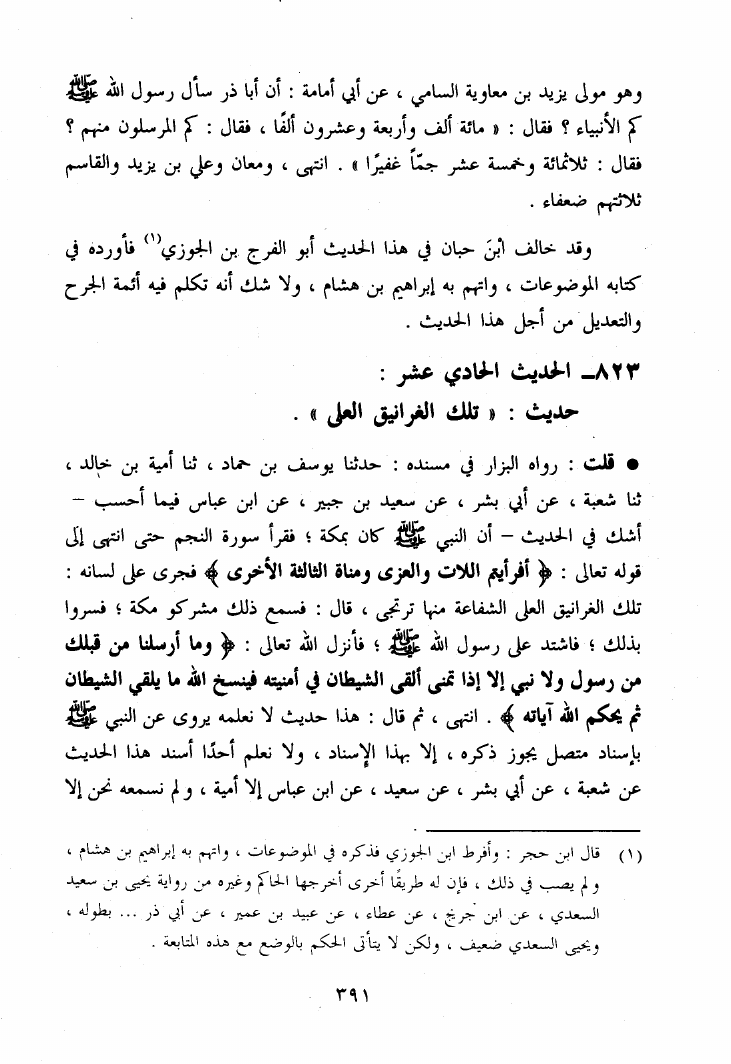 وهو مولى يزيد بن معاوية السامي ، عن أبي أمامة : أن أبا ذر سأل رسول الله ﷺ
كم الأنبياء ؟ فقال : « مائة ألف وأربعة وعشرون ألفًا ، فقال : كم المرسلون منهم ؟
فقال : ثلاثمائة وخمسة عشر جمّاً غفيرًا » . انتهى ، ومعان وعلي بن يزيد والقاسم
ثلاثتهم ضعفاء .
وقد خالف ابْنَ حبان في هذا الحديث أبو الفرج بن الجوزي(١) فأورده في
كتابه الموضوعات ، واتهم به إبراهيم بن هشام ، ولا شك أنه تكلم فيه أئمة الجرح
والتعديل من أجل هذا الحديث .
٨٢٣ــ الحديث الحادي عشر :
حديث : « تلك الغرانيق العلى » .
● قلت : رواه البزار في مسنده : حدثنا يوسف بن حماد ، ثنا أمية بن خالد ،
ثنا شعبة ، عن أبي بشر ، عن سعيد بن جبير ، عن ابن عباس فيما أحسب –
أشك في الحديث – أن النبي ﷺ كان بمكة ؛ فقرأ سورة النجم حتى انتهى إلى
قوله تعالى : ﴿ أفرأيتم اللات والعزى ومناة الثالثة الأخرى ﴾ فجرى على لسانه :
تلك الغرانيق العلى الشفاعة منها ترتجى ، قال : فسمع ذلك مشركو مكة ؛ فسروا
بذلك ؛ فاشتد على رسول الله ﷺ ؛ فأنزل الله تعالى : ﴿ وما أرسلنا من قبلك
من رسول ولا نبي إلا إذا تمنى ألقى الشيطان في أمنيته فينسخ الله ما يلقي الشيطان
ثم يحكم الله آياته ﴾ . انتهى ، ثم قال : هذا حديث لا نعلمه يروى عن النبي ﷺ
بإسناد متصل يجوز ذكره ، إلا بهذا الإسناد ، ولا نعلم أحدًا أسند هذا الحديث
عن شعبة ، عن أبي بشر ، عن سعيد ، عن ابن عباس إلا أمية ، ولم نسمعه نحن إلا
(١) قال ابن حجر : وأفرط ابن الجوزي فذكره في الموضوعات ، واتهم به إبراهيم بن هشام ،
ولم يصب في ذلك ، فإن له طريقًا أخرى أخرجها الحاكم وغيره من رواية يحيى بن سعيد
السعدي ، عن ابن جريج ، عن عطاء ، عن عبيد بن عمير ، عن أبي ذر ... بطوله ،
ويحيى السعدي ضعيف ، ولكن لا يتأتى الحكم بالوضع مع هذه المتابعة .
٣٩١